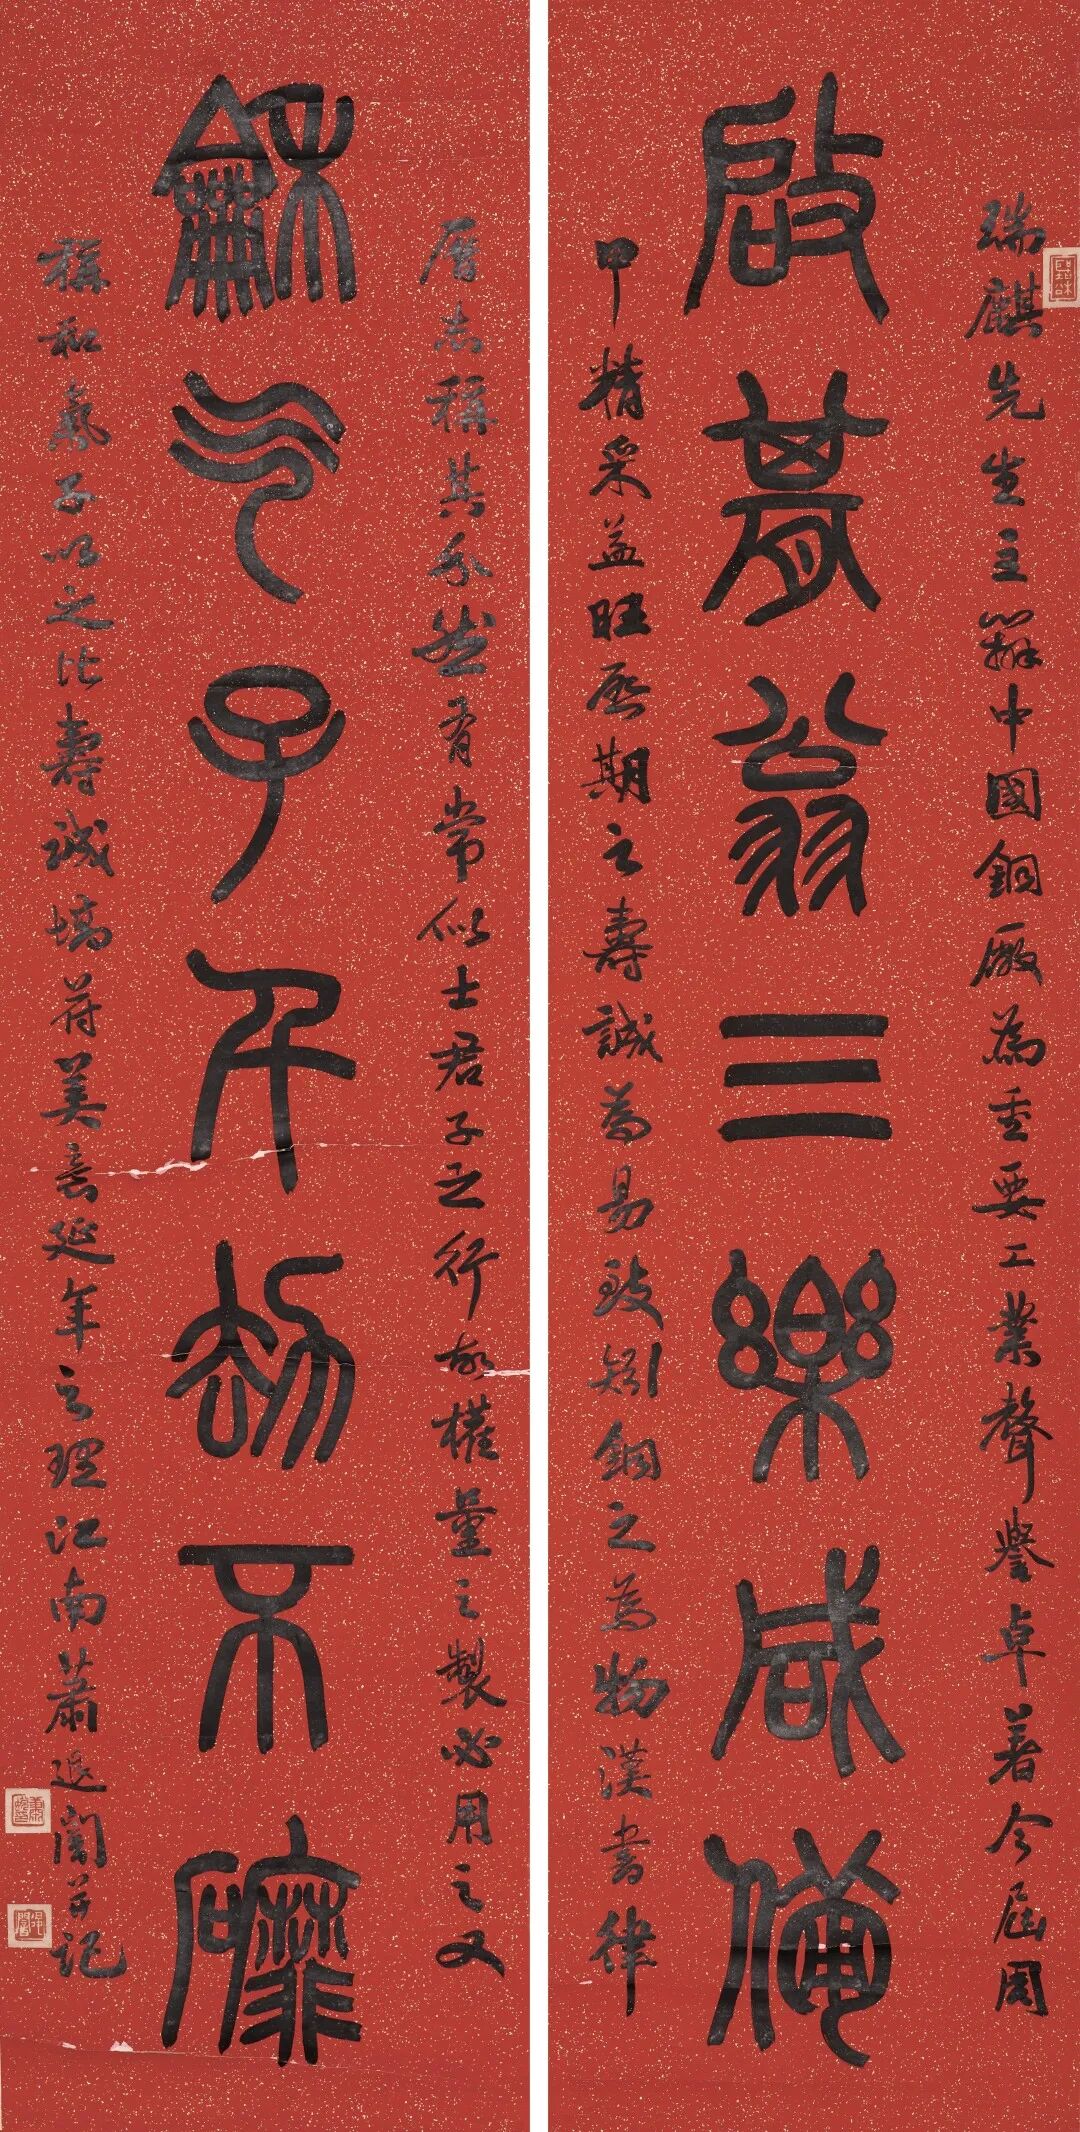 瑞麒先生主辦中國銅廠為重要工業聲譽卓著今屆周
啟朞翁三樂咸備
甲精采益旺啟期之壽誠為易致矧銅之為物漢書律
厤志稱其介然有常似士君子之行故權量之製必用之又
龢气子千劫不䃺
稱和氣子以之比壽誠堪符美意延年之理江南蕭退闇并記